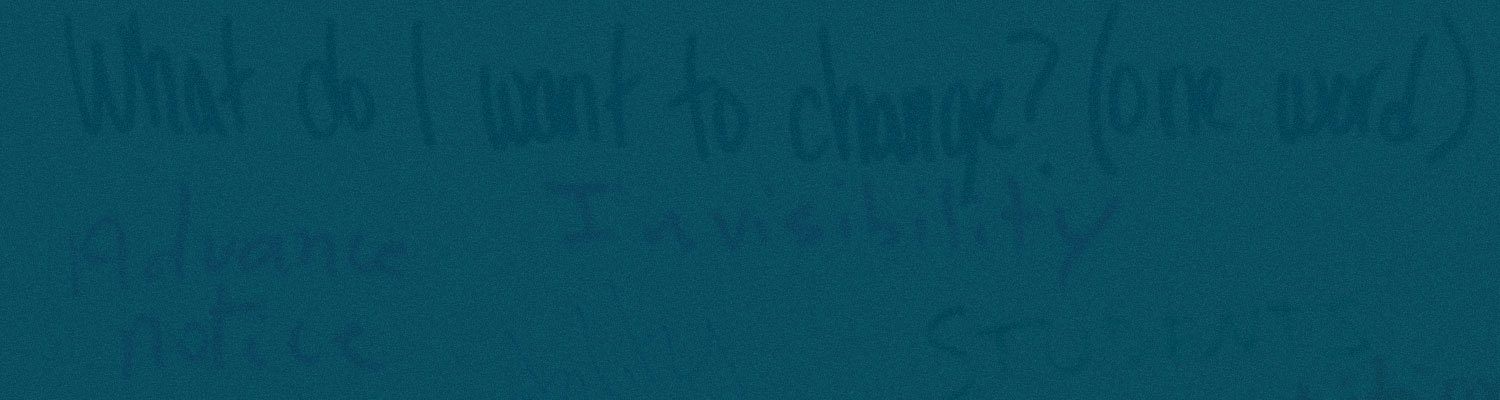 What do I want to change? (one word)
Advance
notice
Invisibility
STUDENT